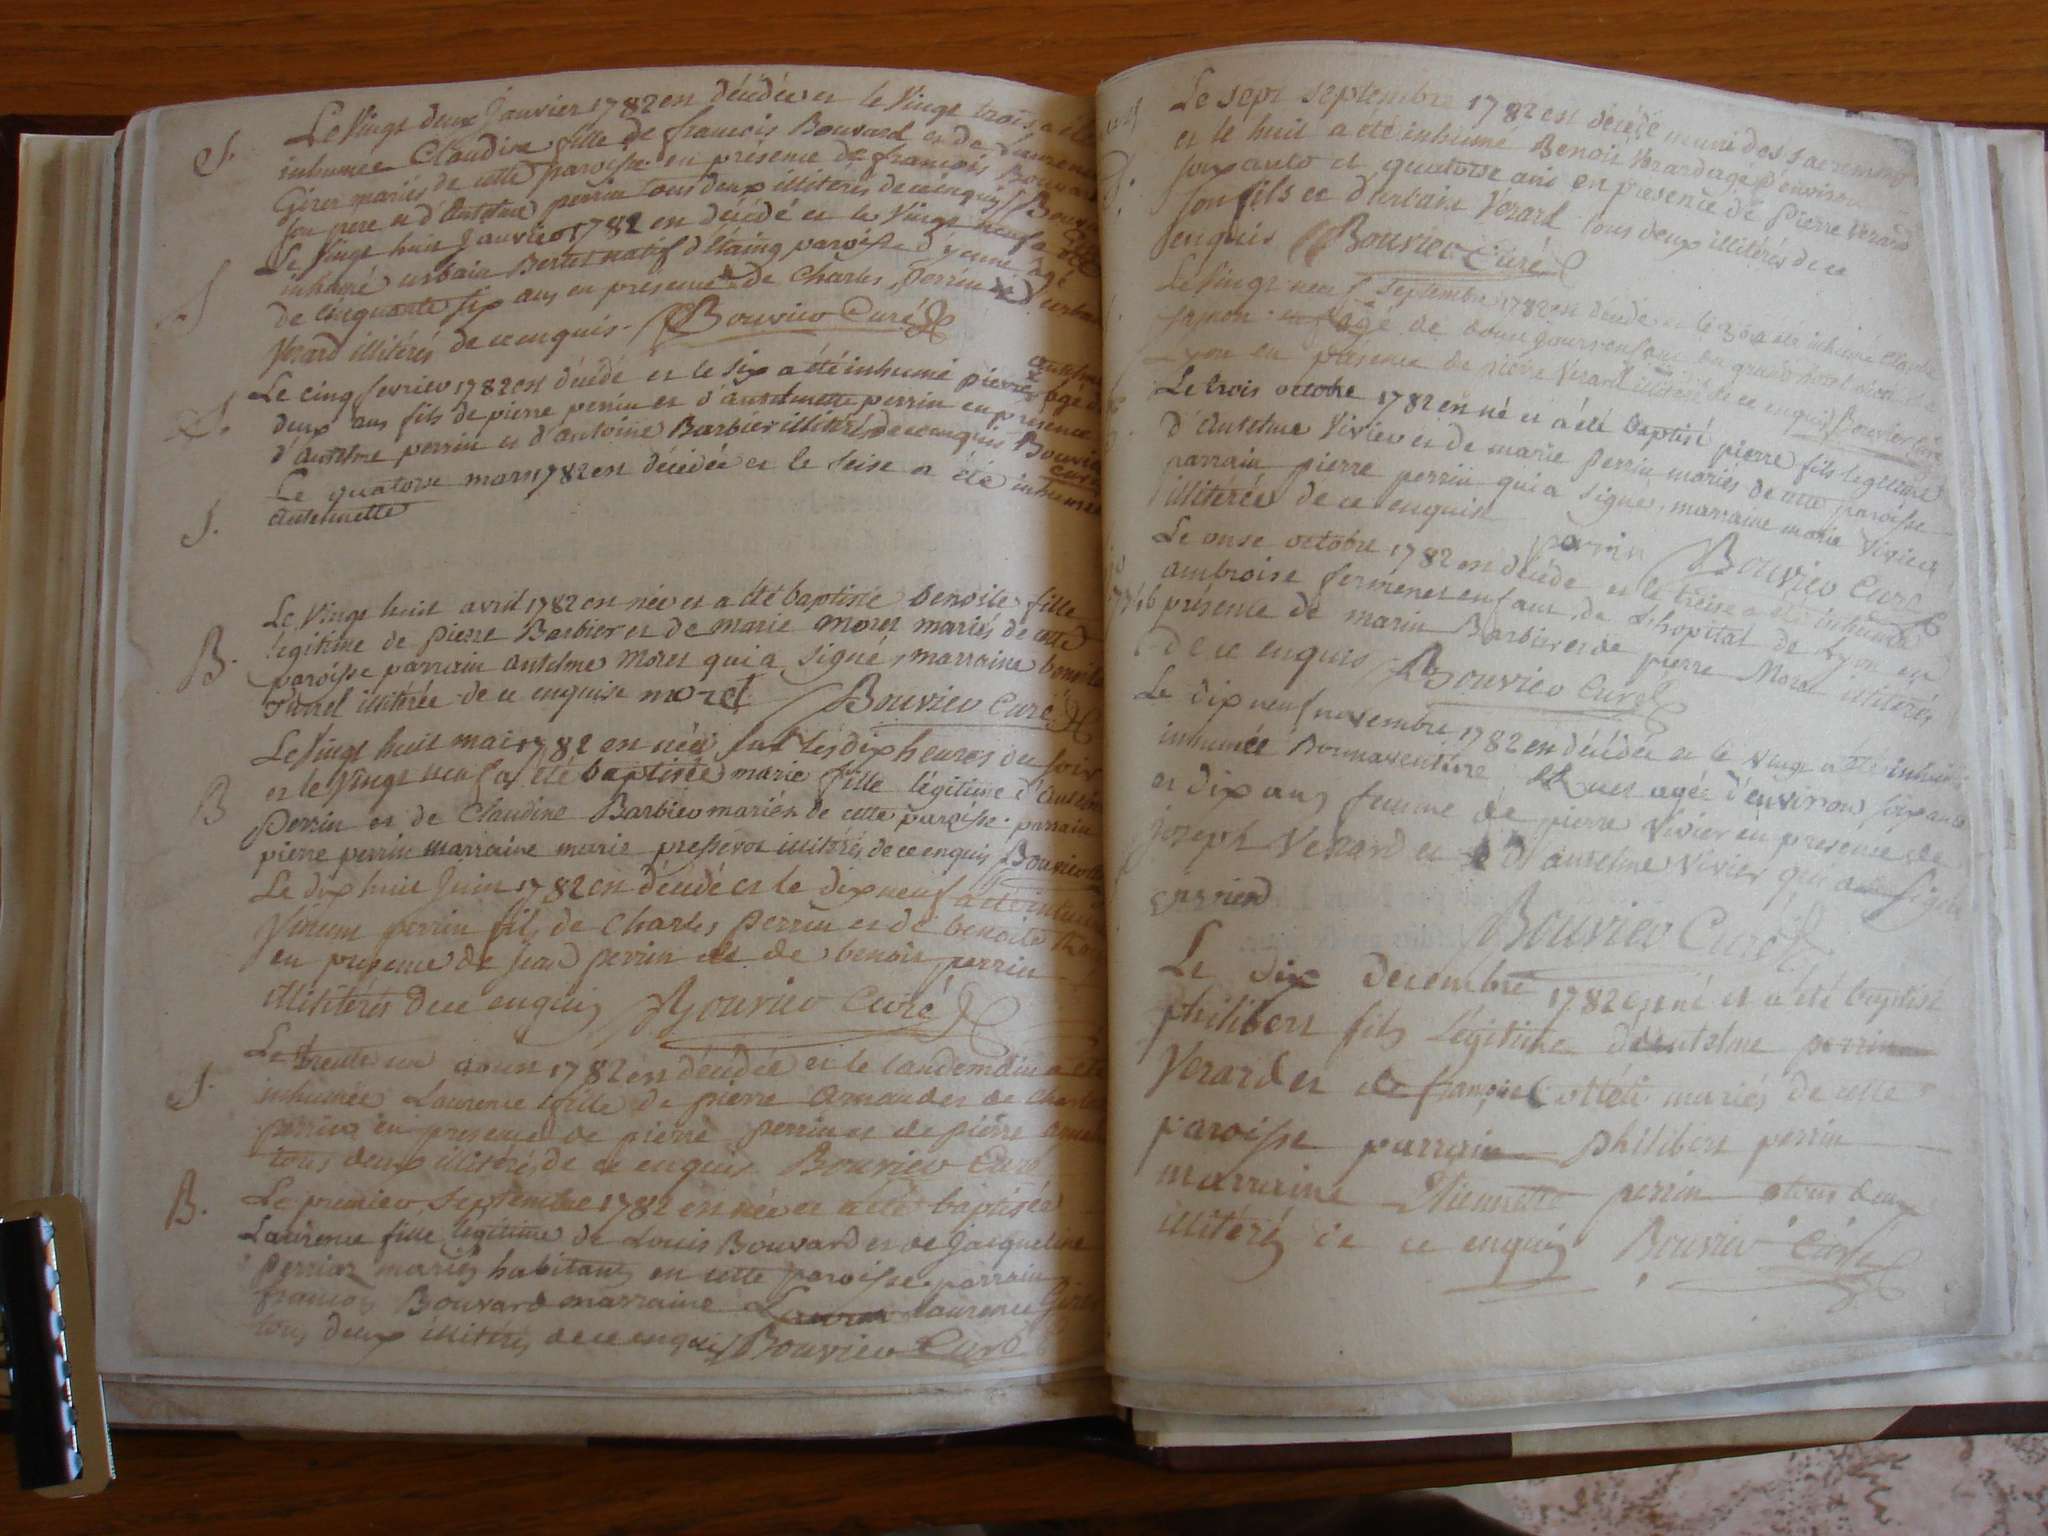 S.
Le Vingt deux Janvier 1782 est décédée et le Vingt trois a été
inhumée Claudine fille de francois Bouvard et de Laurence
Girer mariés de cette paroisse en présence de francois Bouvard
son père et d'Antelme perrin tous deux illitérés de ce enquis Bouvier
Le Vingt huit Janvier 1782 est décédé et le Vingt neuf a été
inhumé urbain Bertet natif d'Etaing paroisse d'yenne agé
de cinquante six ans en présence de Charles Perrin et d'urbain
Verard illitérés de ce enquis. Bouvier Curé
S.
Le cinq fevrier 1782 est décédé et le six a été inhumé pierre antelme agé de
deux ans fils de pierre perrin et d'antelmette perrin en présence
d'antelme perrin et d'antoine Barbier illitérés de ce enquis Bouvier
Curé
S.
Le quatorse mars 1782 est décédée et le seise a été inhumée
antelmette
B.
Le Vingt huit avril 1782 est née et a été baptisée benoite fille
legitime de pierre Barbier et de marie moret mariés de cette
paroisse parrain antelme Moret qui a signé, marraine benoite
illitérée de ce enquise moret Bouvier Curé
B
Le Vingt huit mai 1782 est née sur les dix heures du soir
et le Vingt neuf a été baptisée marie fille légitime d'antelme
Perrin et de Claudine Barbier mariés de cette paroisse parrain
pierre perrin marraine marie illitérés de ce enquis Bouvier
Le dix huit Juin 1782 est décédé et le dix neuf a été inhumé
perrin fils de Charles perrin et de benoite
en présence de Jean perrin et de benoit perrin
illitérés de ce enquis Bouvier Curé
S.
Le trente un aoust 1782 est décédée et le landemain a été
inhumée Laurence fille de pierre et de
perrin en présence de pierre perrin et de pierre
tous deux illitérés de ce enquis Bouvier Curé
B.
Le premier Septembre 1782 est née et a été baptisée
Laurence fille legitime de Louis Bouvard et de Jacqueline
Perrin mariés habitans en cette paroisse parrain
francois Bouvard marraine Laurence Girer
tous deux illitérés de ce enquis Bouvier Curé
Le sept septembre 1782 est décédé muni des sacremens
et le huit a été inhumé Benoit Verard agé d'environ
soixante et quatorse ans en présence de Pierre Verard
son fils et d'urbain Verard tous deux illitérés de ce
enquis Bouvier Curé
Le Vingt neuf Septembre 1782 est décédé et le 30 a été inhumé Claude
agé de douze jours enfant du grand hotel dieu de
Lyon en présence de pierre Verard illitéré de ce enquis Bouvier Curé
Le trois octobre 1782 est né et a été baptisé pierre fils legitime
d'Antelme Vivier et de marie perrin mariés de cette paroisse
parrain pierre perrin qui a signé, marraine marie Vivier
illitérée de ce enquise perrin Bouvier Curé
Le onse octobre 1782 est décédé et le treise a été inhumé
ambroise enfant de L'hopital de Lyon en
présence de marin Barbier et de pierre Moret illitérés
de ce enquis Bouvier Curé
Le dix neuf novembre 1782 est décédée et le vingt a été inhumée
inhumée Bonnaventure agée d'environ soixante
et dix ans femme de pierre Vivier en présence de
joseph Verard et d'antelme Vivier qui a signé
Bouvier Curé
Le dix decembre 1782 est né et a été baptisé
philibert fils légitime d'antelme perrin
Verard et de françoise mariés de cette
paroisse parrain philibert perrin
marraine Etiennette perrin tous deux
illitérés de ce enquis Bouvier Curé